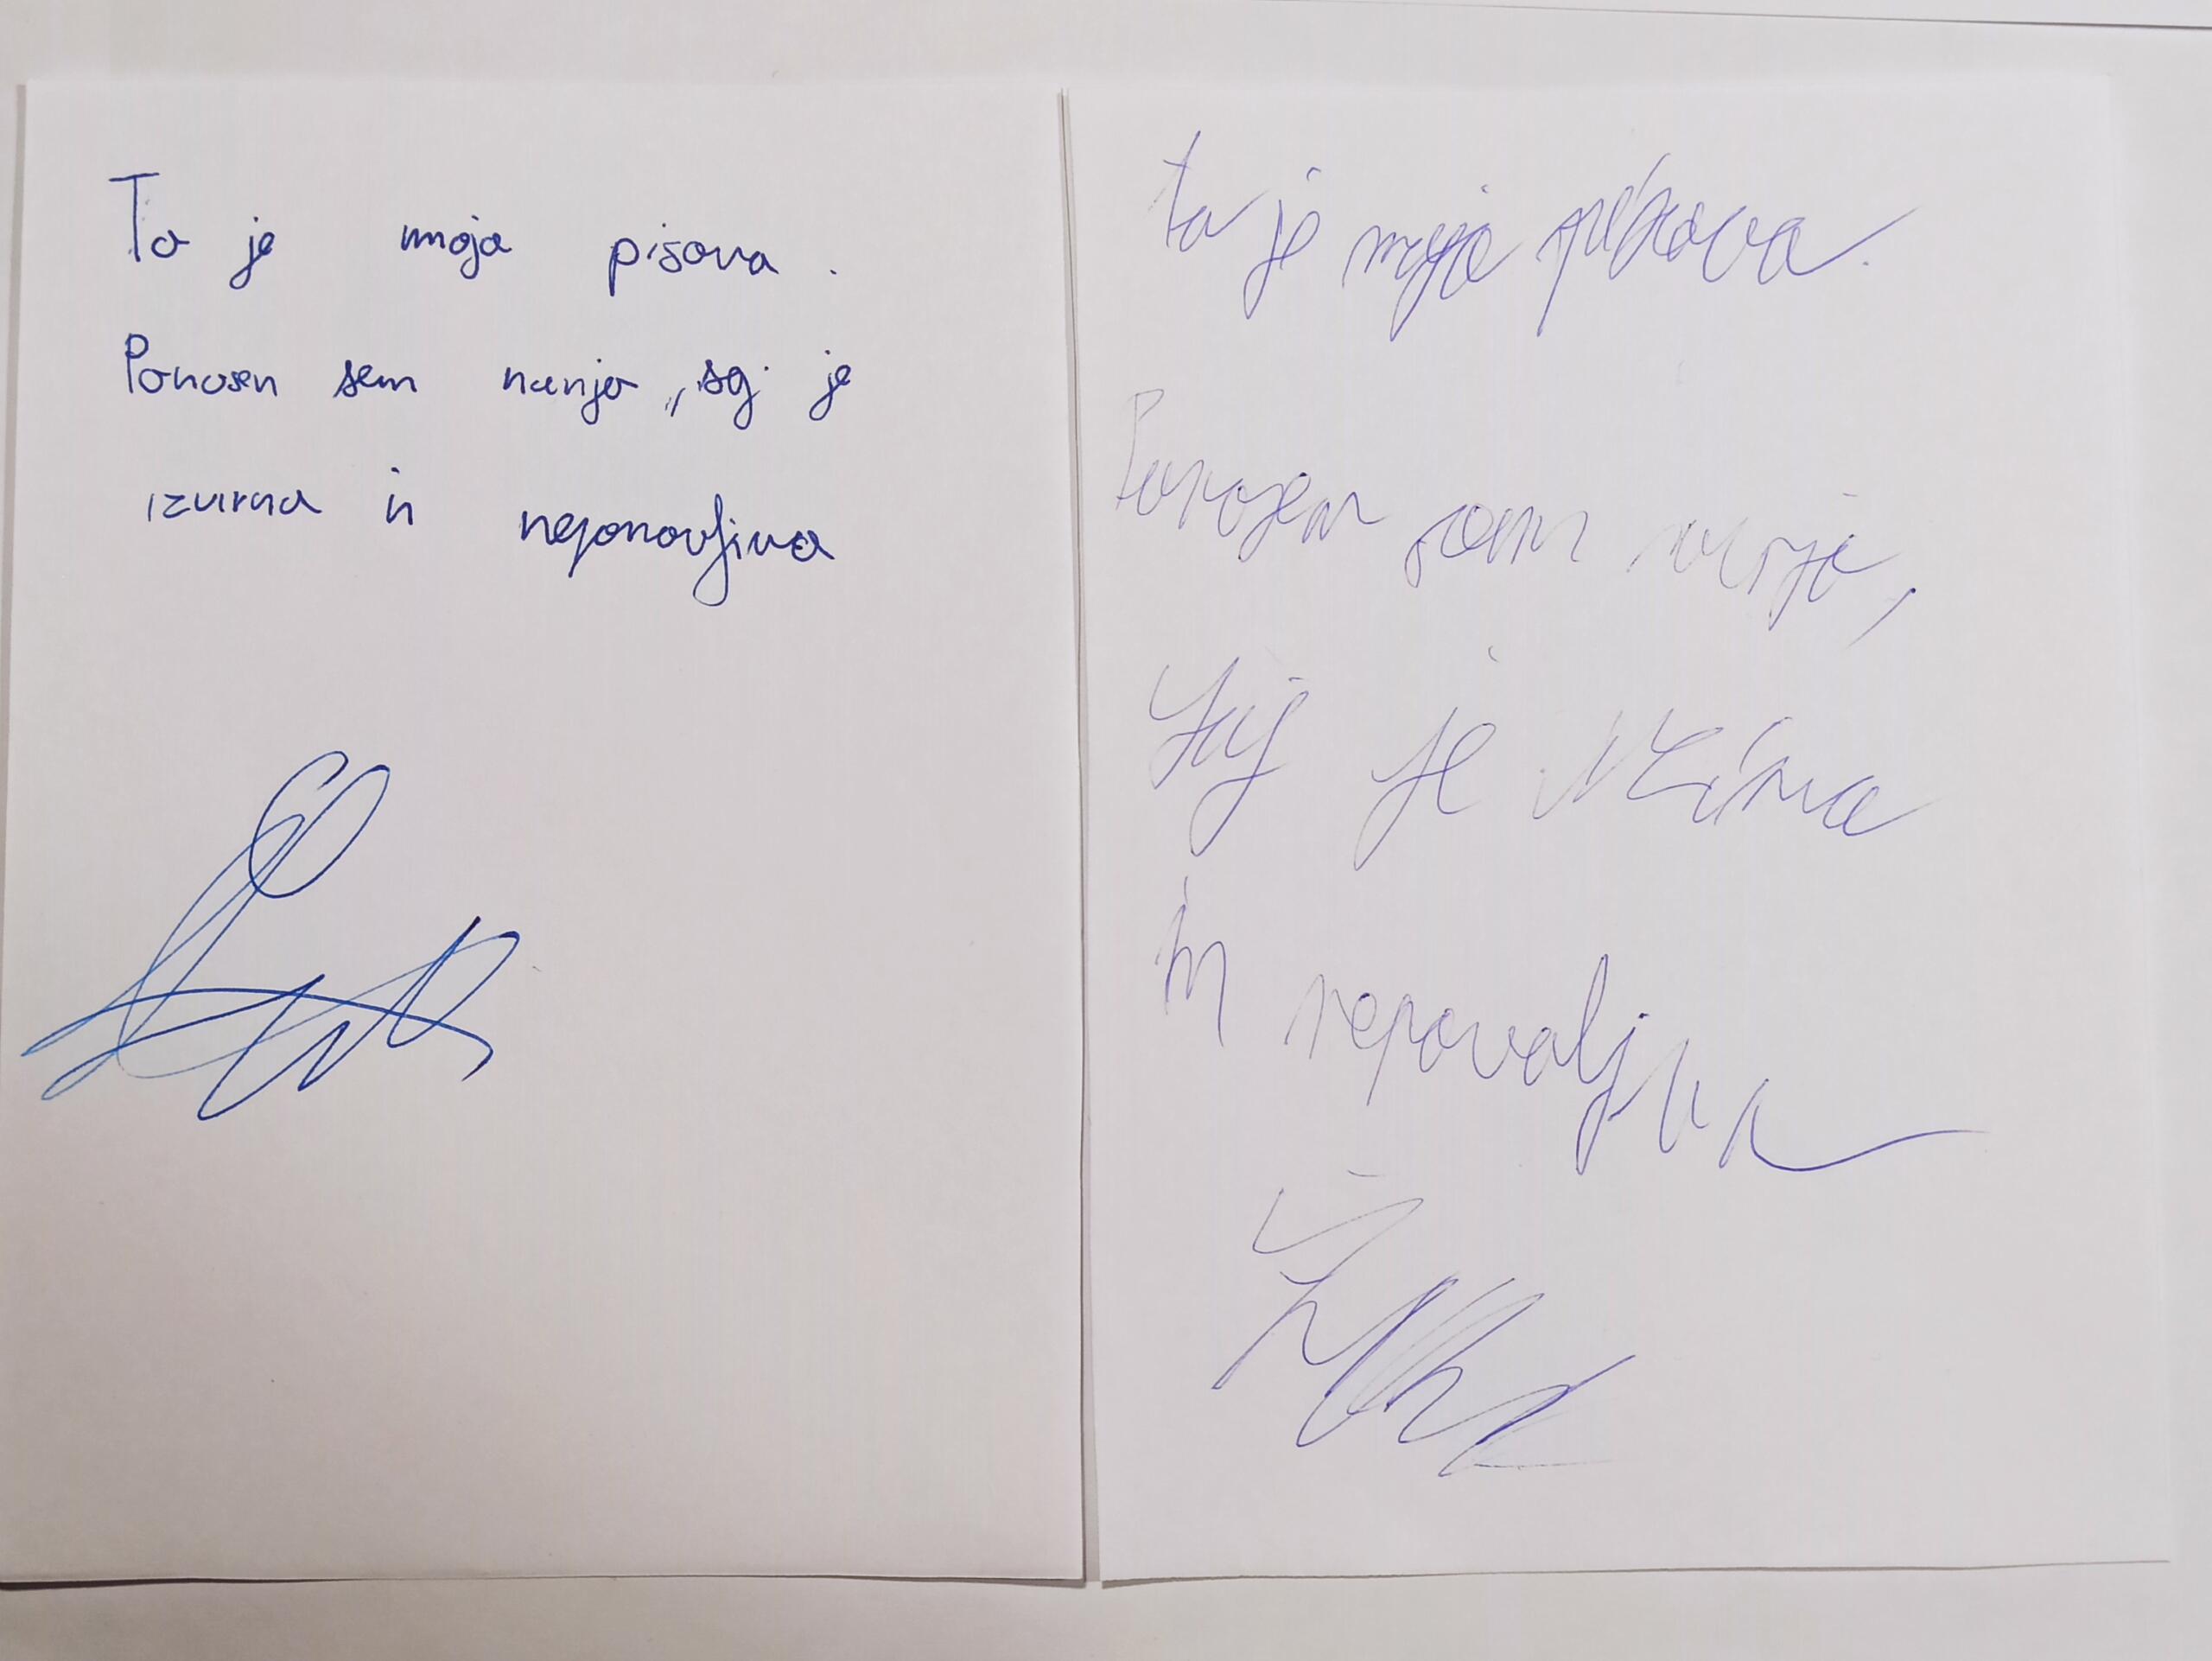 To je moja pisava.
Ponosen sem nanjo, saj je
izvirna in neponovljiva
ta je moja pisava.
Ponosen sem nanjo,
saj je
in nepovaljva